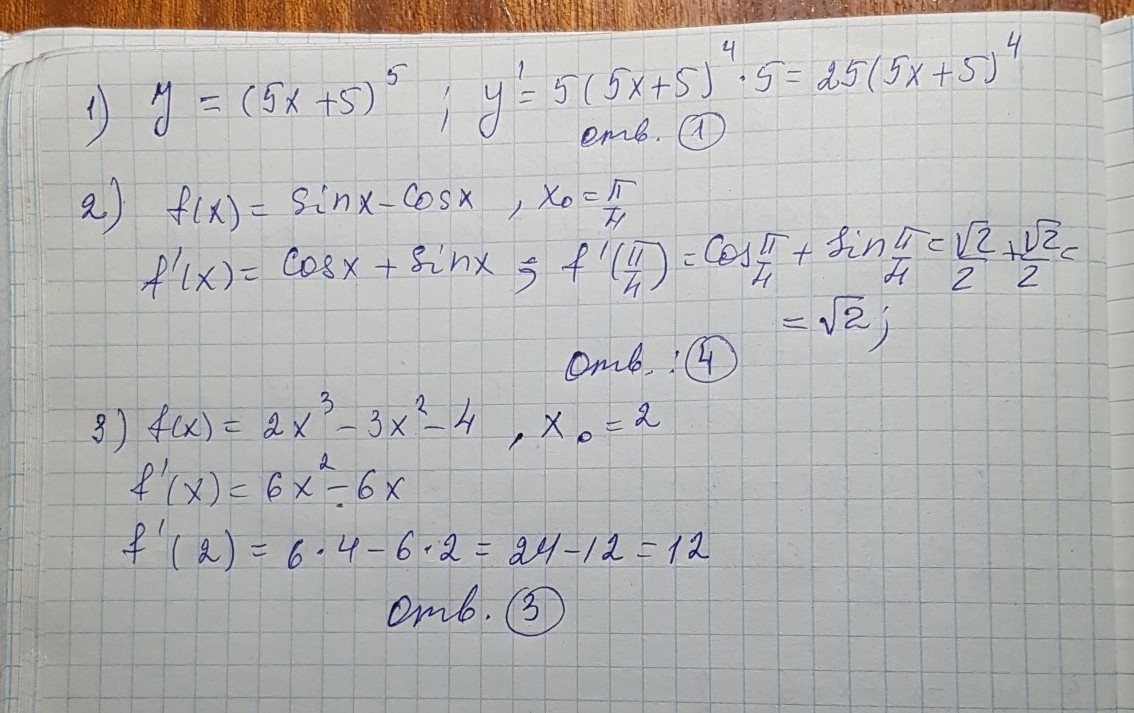 1) y = (5x+5)⁵ ; y' = 5(5x+5)⁴·5 = 25(5x+5)⁴
отв. ①
2) f(x) = sinx - cosx , x₀ = π/4
f'(x) = cosx + sinx ; f'(π/4) = cos π/4 + sin π/4 = √2/2 + √2/2 =
= √2;
Отв. : ④
3) f(x) = 2x³ - 3x² - 4 , x₀ = 2
f'(x) = 6x² - 6x
f'(2) = 6·4 - 6·2 = 24 - 12 = 12
Отв. ③